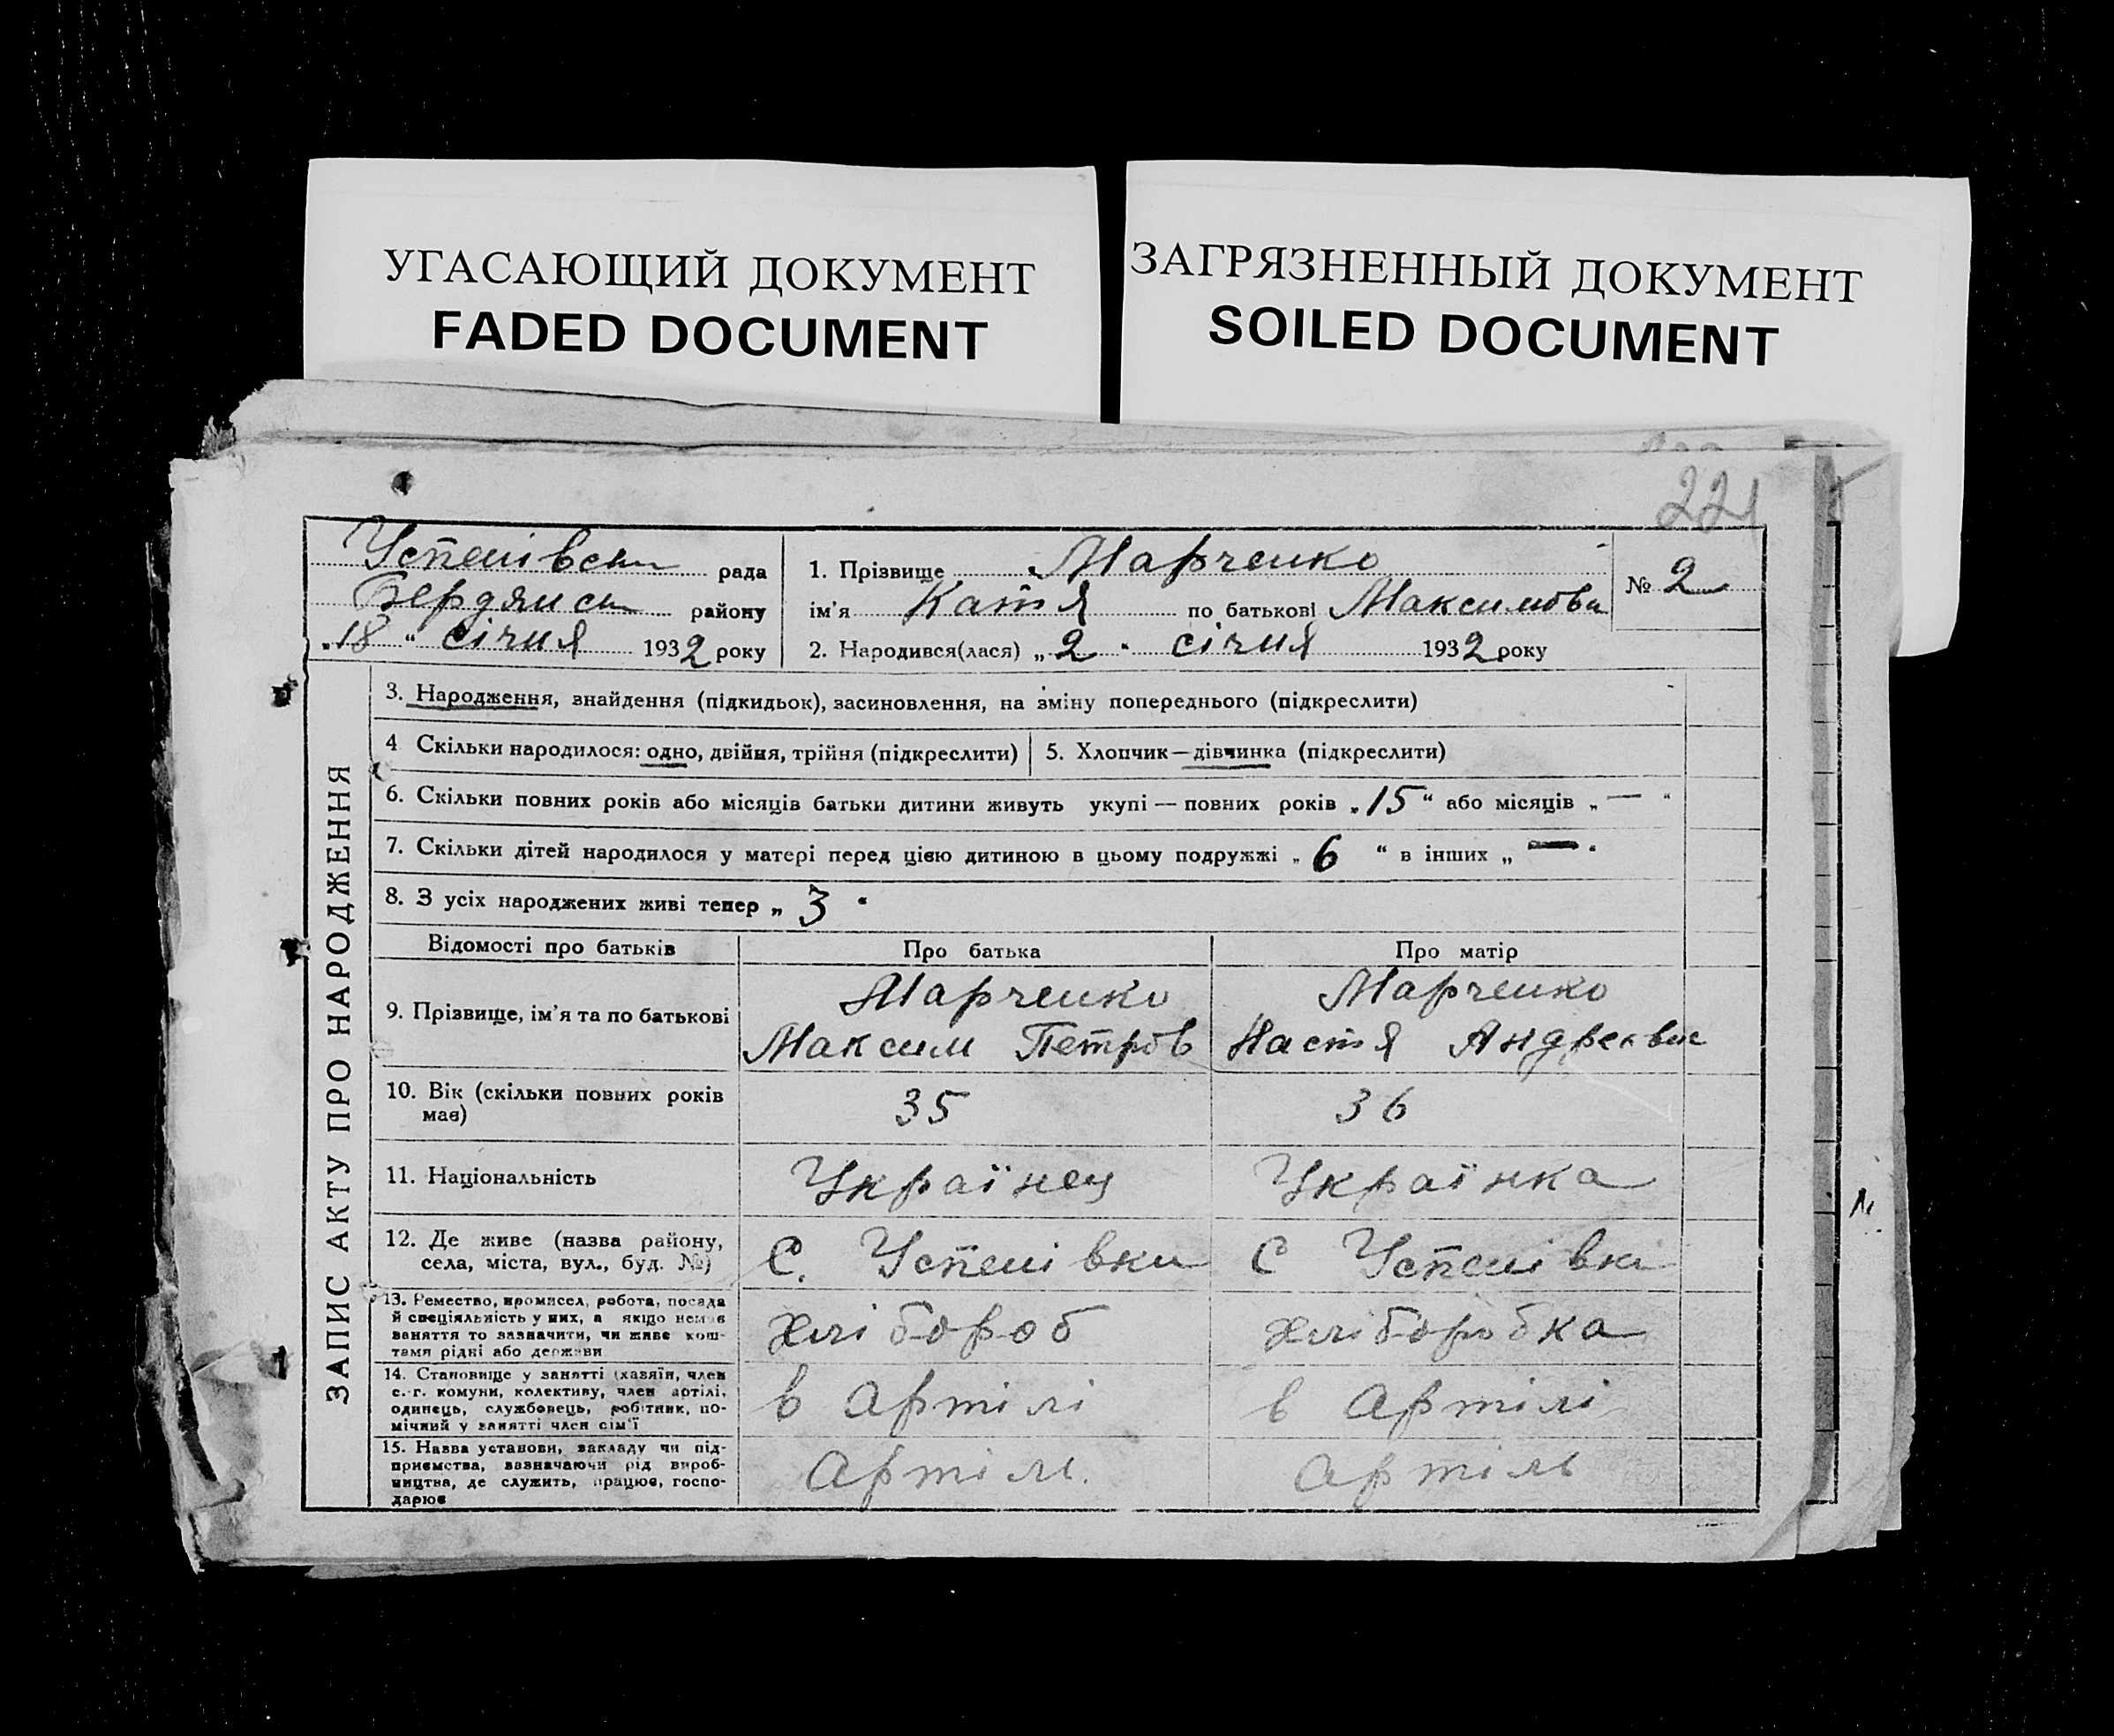 УГАСАЮЩИЙ ДОКУМЕНТ
FADED DOCUMENT
ЗАГРЯЗНЕННЫЙ ДОКУМЕНТ
SOILED DOCUMENT
221
Успенівськ рада
Бердянськ району
„18“ січня 1932 року
1. Прізвище Марченко
ім'я Катя по батькові Максимовн
№ 2
2. Народився(лася) „2“ січня 1932 року
ЗАПИС АКТУ ПРО НАРОДЖЕННЯ
3. Народження, знайдення (підкидьок), засиновлення, на зміну попереднього (підкреслити)
4 Скільки народилося: одно, двійня, трійня (підкреслити)
5. Хлопчик—дівчинка (підкреслити)
6. Скільки повних років або місяців батьки дитини живуть укупі — повних років „15“ або місяців „—“
7. Скільки дітей народилося у матері перед цією дитиною в цьому подружжі „6“ в інших „—“
8. З усіх народжених живі тепер „3“
Відомості про батьків Про батька Про матір
9. Прізвище, ім'я та по батькові
Марченко
Максим Петров
Марченко
Настя
10. Вік (скільки повних років
має)
35
36
11. Національність
Українец
Українка
12. Де живе (назва району,
села, міста, вул., буд. №)
С. Успенівки
С Успенівкі
13. Ремество, промисел, робота, посада
й спеціяльність у них, а якщо немає
заняття то зазначити, чи живе кош-
тами рідні або держави
хлібороб
хліборобка
14. Становище у занятті (хазяїн, член
с.-г. комуни, колективу, член артілі,
одинець, службовець, робітник, по-
мічний у занятті член сім'ї
в Артілі
в Артілі
15. Назва установи, закладу чи під-
приємства, зазначаючи рід вироб-
ництва, де служить, працює, госпо-
дарює
Артіл.
Артіль